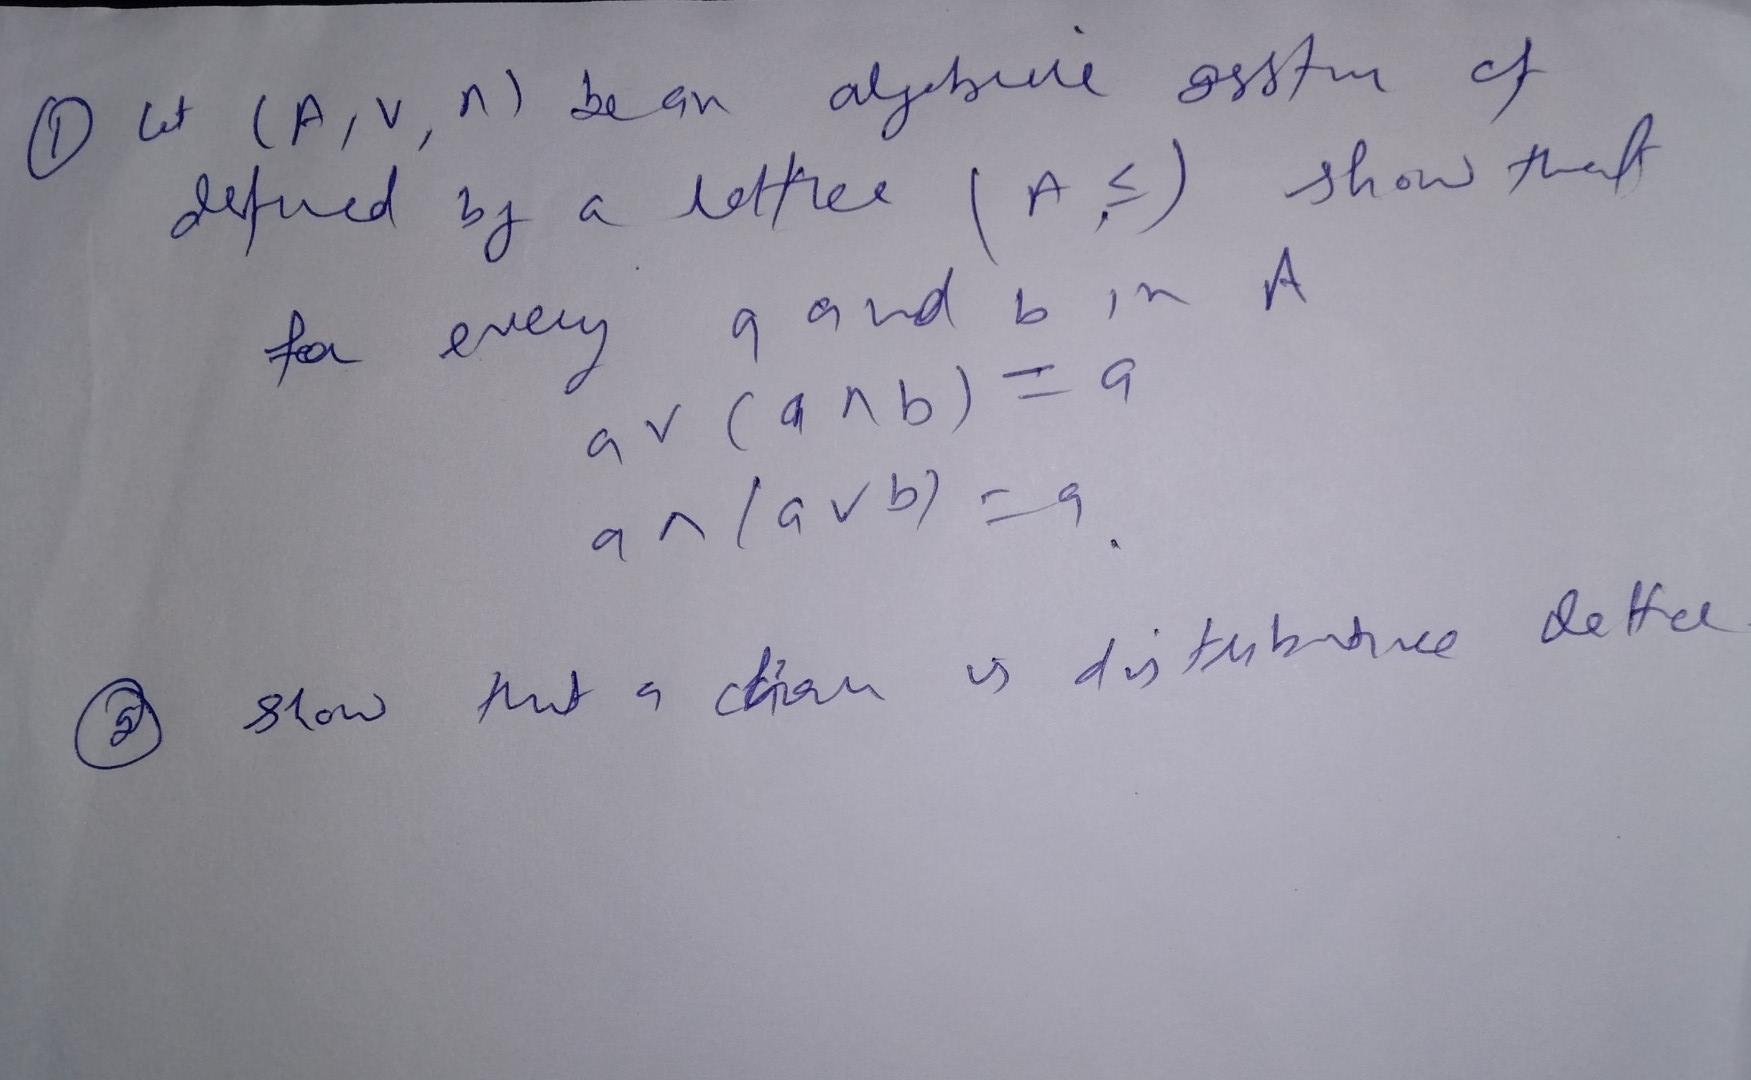 ① Let (A, ∨, ∧) be an algebraic system of
defined by a lattice (A, ≤) show that
for every a and b in A
a ∨ (a ∧ b) = a
a ∧ (a ∨ b) = a.
② show that a chain is distributive lattice